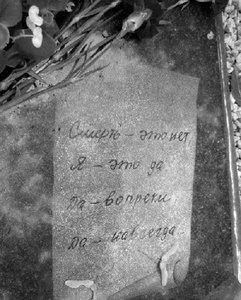 Смерть – это нет
Я – это да
Да – вопреки
Да – навсегда